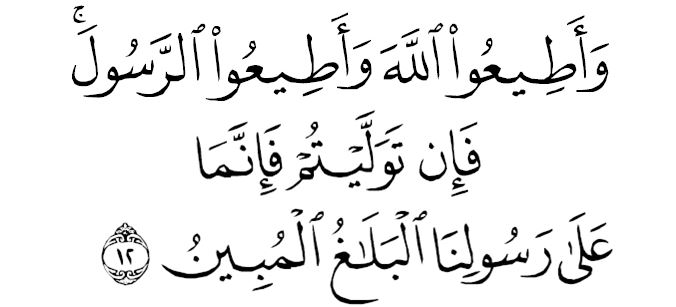 وَأَطِيعُوا۟ ٱللَّهَ وَأَطِيعُوا۟ ٱلرَّسُولَ ۚ
فَإِن تَوَلَّيْتُمْ فَإِنَّمَا
عَلَىٰ رَسُولِنَا ٱلْبَلَـٰغُ ٱلْمُبِينُ ١٢